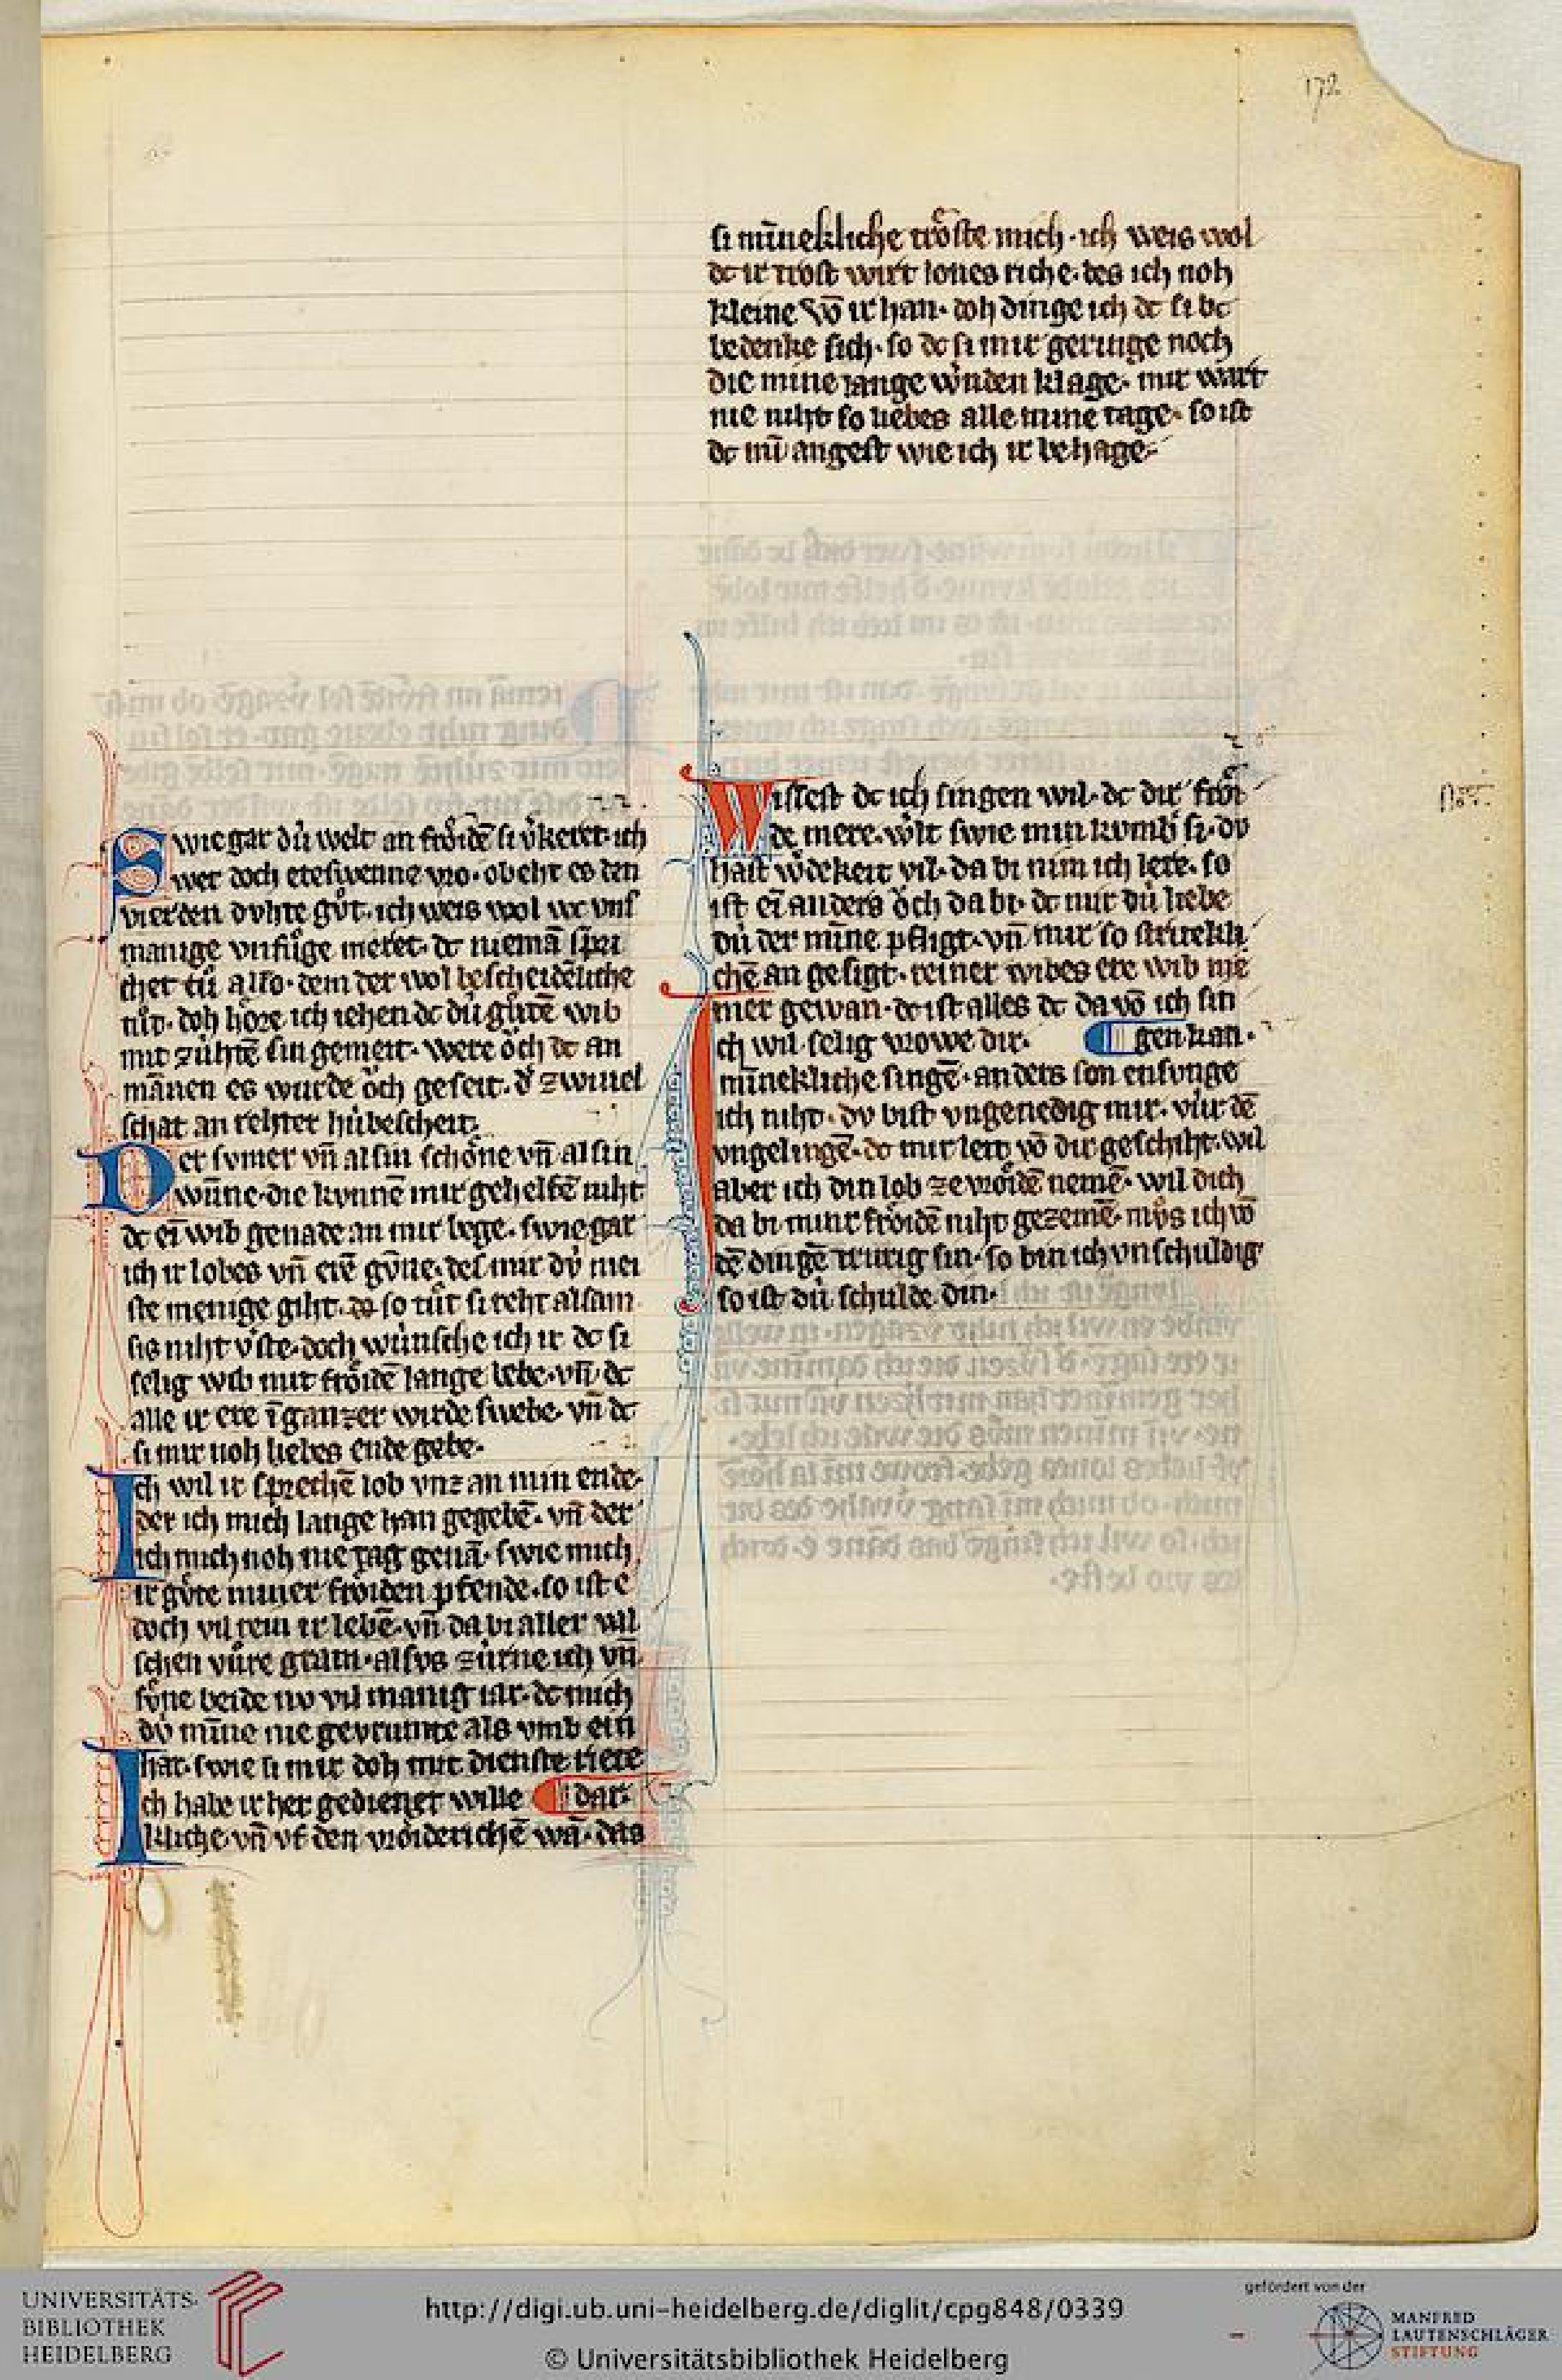 172
Swie gar dù welt an froͤidē si v̓keret. ich
wer doch eteswenne vro. obeht es den
vierden duhte guͦt. ich weis wol wc vns
manige vnfuͦge meret. dc niemā spri
chet tuͦ also. dem der wol bescheidēliche
tuͦt. doh hoͤre ich iehen dc dù guͦtē wib
mit zùhtē sin gemeit. were oͮch dc an
mānen es wurde oͮch geseit. d̓ zwiuel
schat an rehter hùbescheit.
Der svmer vñ al sin schoͤne vñ al sin
wūne. die kvnnē mir gehelfē niht
dc eī wib genade an mir bege. swie gar
ich ir lobes vñ erē gvnne. des mir dù mei
ste menige giht. do so tuͦt si reht alsam
sis niht v̓ste. doch wùnsche ich ir dc si
selig wib mit froͤidē lange lebe. vñ dc
alle ir ere ī ganzer wirde swebe. vñ dc
si mir noh liebes ende gebe.
Ich wil ir sprechē lob vnz an min ende.
der ich mich lange han gegebē. vñ der
ich mich noh nie tag genā. swie mich
ir guͤte miner froͤiden pfende. so ist e
doch vil rein ir lebē. vñ da bi aller val
schen vuͦre gram. alsvs zùrne ich vñ
suͤne beide nv vil manig iar. dc mich
dù mīne nie gevrumte als vmb ein
har. swie si mir doh mit dienste tiere
Ich habe ir her gedienet wille dar.
kliche. vñ vf den vroͤiderichē wā. das
si mīnekliche troͤste mich. ich weis wol
dc ir trost wirt lones riche. des ich noh
kleine vō ir han. doh dinge ich dc si bc
bedenke sich. so dc si mir geringe noch
die mine lange wnden klage. mir wart
nie niht so liebes alle mine tage. so ist
dc mī angest wie ich ir behage.
Wissest dc ich singen wil. dc dir froͤi
de mere. wilt swie min kvmb̓ si. dv
hast wdekeit vil. da bi nim ich lere. so
ist eī anders oͮch da bi. dc mir dù liebe
dù der mīne pfligt. vñ mir so stritekli
chē an gesigt. reiner wibes ere wib nie
mer gewan. dc ist alles dc da vō ich sin
Ich wil selig vrowe dir. gen kan.
mīnekliche singē. anders son ensvnge
ich niht. dv bist vngenedig mir. vùr dē
vngelingē. dc mir leit vō dir geschiht. wil
aber ich din lob ze vroͤidē nemē. wil dich
da bi minr froͤidē niht gezemē. muͦs ich vō
dē dingē trurig sin. so bin ich vnschuldig
so ist dù schulde din.
UNIVERSITÄTS-
BIBLIOTHEK
HEIDELBERG
http://digi.ub.uni-heidelberg.de/diglit/cpg848/0339
© Universitätsbibliothek Heidelberg
gefördert von der
MANFRED
LAUTENSCHLÄGER
STIFTUNG